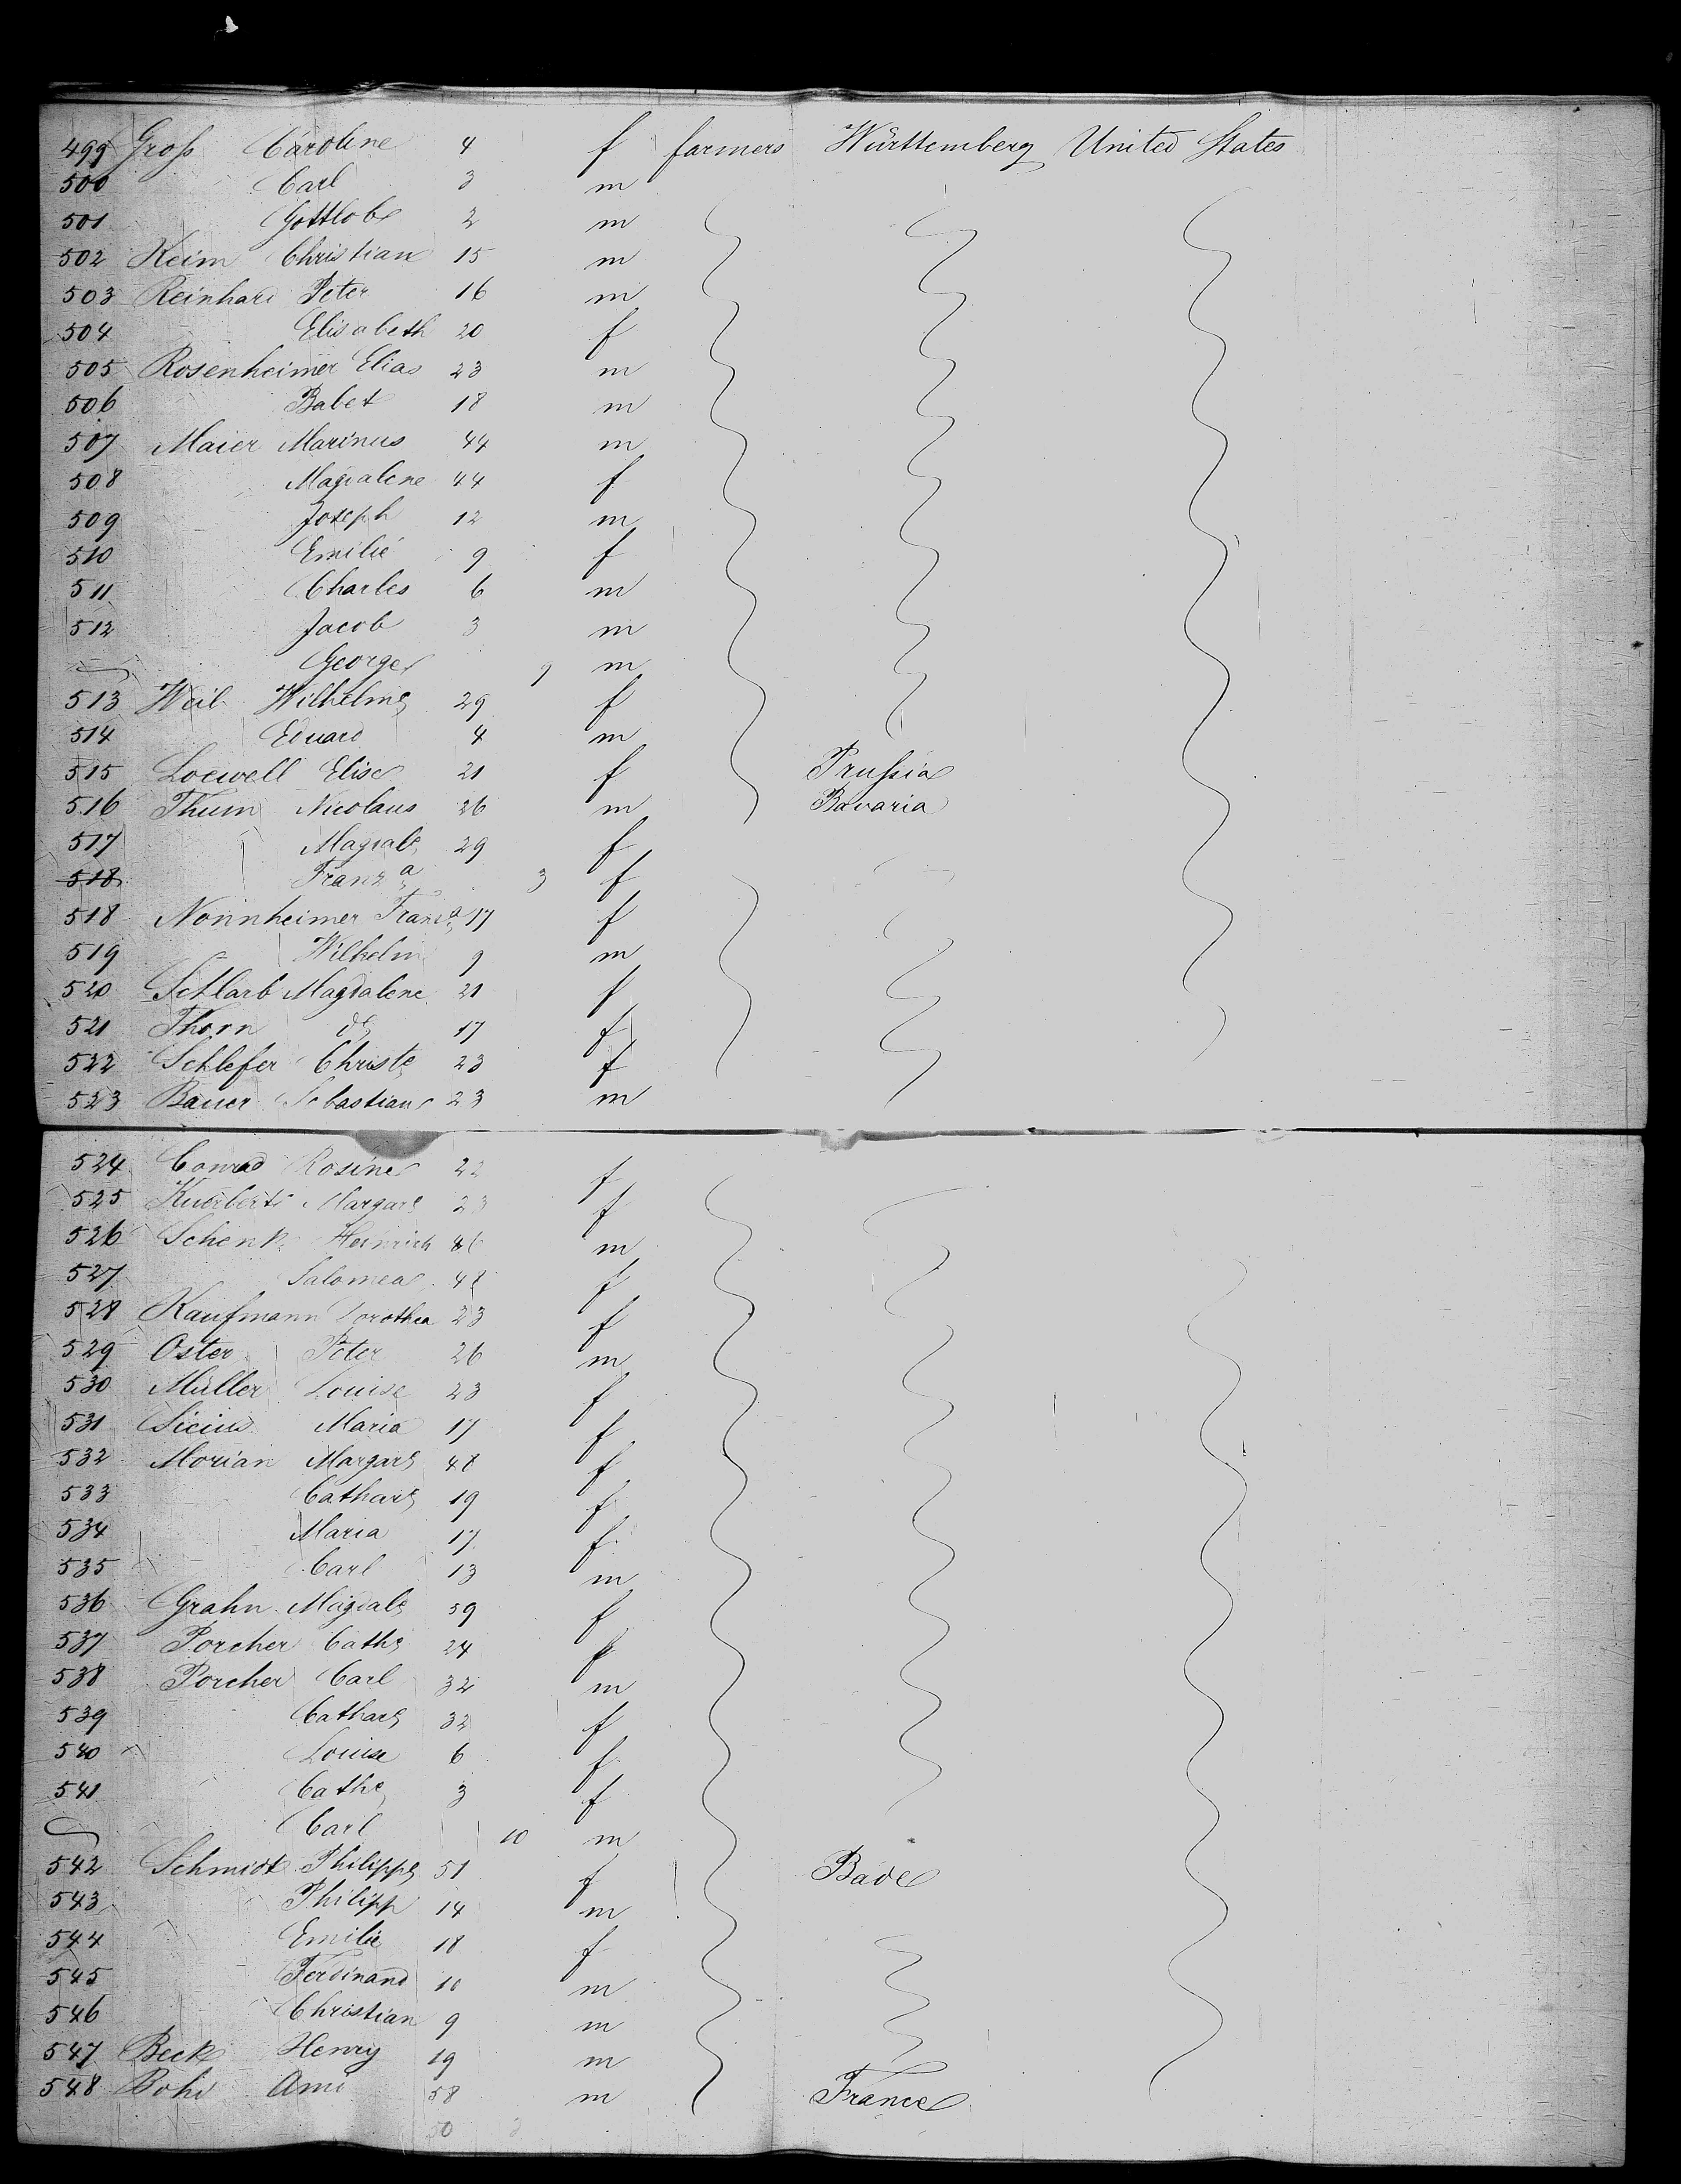 499 Groß Caroline 4 f farmers Württemberg United States
500 Carl 3 m
501 Gottlob 2 m
502 Keim Christian 15 m
503 Reinhard Peter 16 m
504 Elisabeth 20 f
505 Rosenheimer Elias 23 m
506 Babet 18 m
507 Maier Marinus 44 m
508 Magdalene 44 f
509 Joseph 12 m
510 Emilie 9 f
511 Charles 6 m
512 Jacob 3 m
George 9 m
513 Weil Wilhelme 29 f
514 Eduard 4 m
515 Loewell Elise 21 f Prußia
516 Thum Nicolaus 26 m Bavaria
517 Magdale 29 f
518 Franza 3 f
518 Nonnheimer Franza 17 f
519 Wilhelm 9 m
520 Schlarb Magdalene 21 f
521 Thorn do 17 f
522 Schlefer Christe 23 f
523 Bauer Sebastian 23 m
524 Conrad Rosine 22 f
525 Margare 23 f
526 Schenk Heinrich m
527 Salomea 48 f
528 Kaufmann Dorothea 23 f
529 Oster Peter 26 m
530 Müller Louise 23 f
531 Maria 17 f
532 Morian Margare 48 f
533 Cathare 19 f
534 Maria 17 f
535 Carl 13 m
536 Grahn Magdale 59 f
537 Porcher Cathe 24 f
538 Porcher Carl 32 m
539 Cathare 32 f
540 Louise 6 f
541 Cathe 3 f
Carl 10 m
542 Schmidt Philippe 51 f Bade
543 Philipp 14 m
544 Emilie 18 f
545 Ferdinand 10 m
546 Christian 9 m
547 Beck Henry 19 m
548 Ami 58 m France
50 3